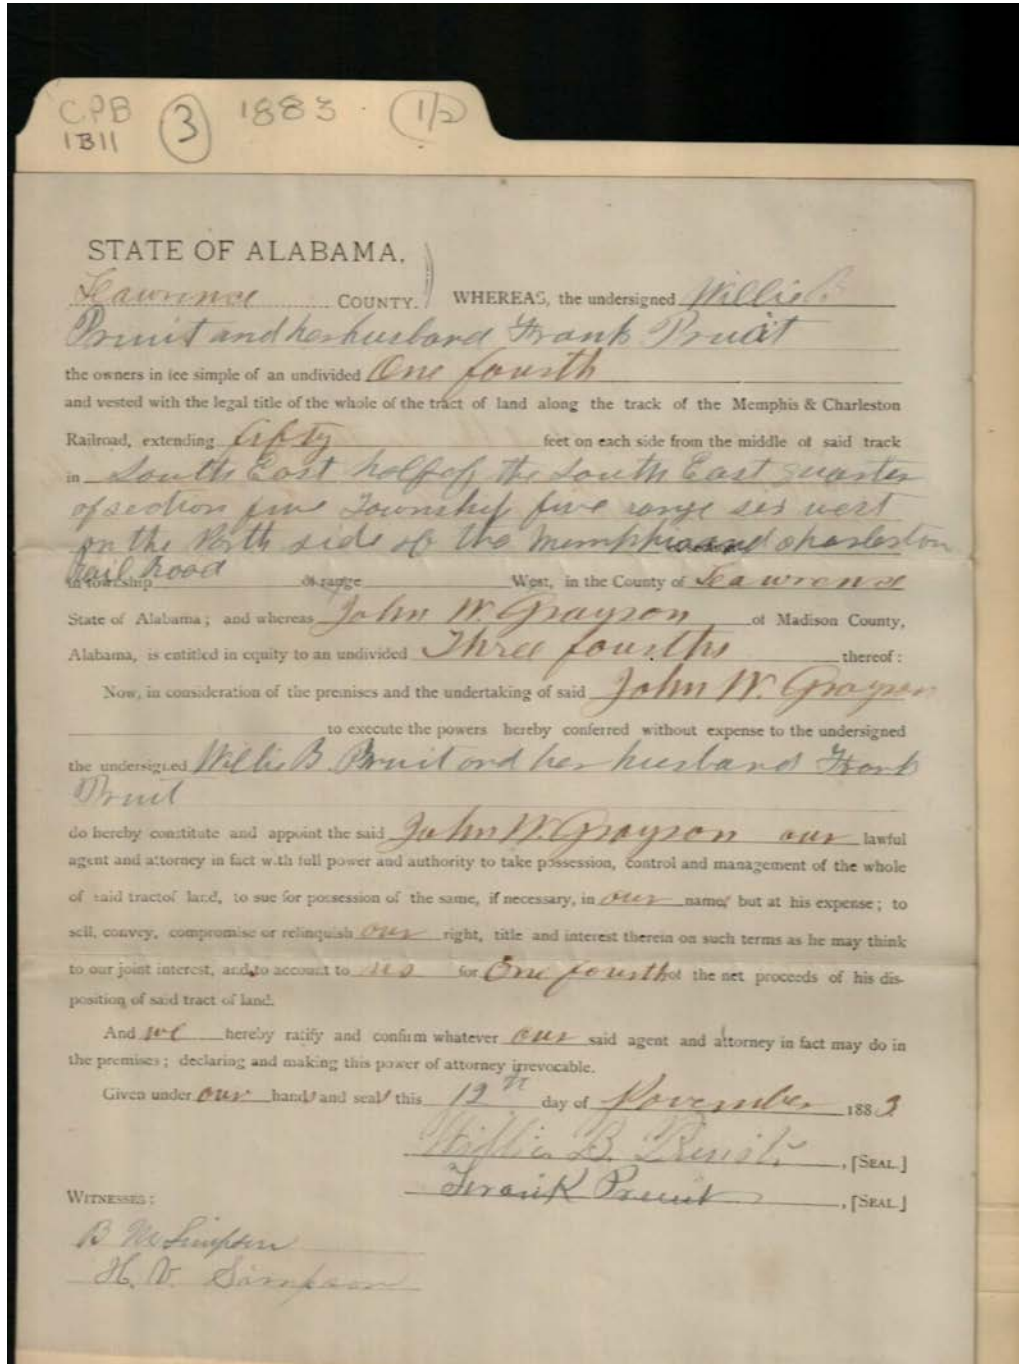 CPB 3 1883 1/2
1B11
STATE OF ALABAMA.
Lawrence COUNTY. WHEREAS, the undersigned Willie B.
Pruit and her husband Frank Pruit
the owners in fee simple of an undivided One fourth
and vested with the legal title of the whole of the tract of land along the track of the Memphis & Charleston
Railroad, extending fifty feet on each side from the middle of said track
in South East half of the South East quarter
of section five Township five range six west
on the North side of the Memphis and charleston
Rail Road
in township of range West, in the County of Lawrence
State of Alabama; and whereas John W. Grayson of Madison County,
Alabama, is entitled in equity to an undivided Three fourths thereof:
Now, in consideration of the premises and the undertaking of said John W. Grayson
to execute the powers hereby conferred without expense to the undersigned
the undersigned Willie B. Pruit and her husband Frank
Pruit
do hereby constitute and appoint the said John W. Grayson our lawful
agent and attorney in fact with full power and authority to take possession, control and management of the whole
of said tractof land, to sue for possession of the same, if necessary, in our name, but at his expense; to
sell, convey, compromise or relinquish our right, title and interest therein on such terms as he may think
to our joint interest, and to account to us for One fourth of the net proceeds of his dis-
position of said tract of land.
And we hereby ratify and confirm whatever our said agent and attorney in fact may do in
the premises; declaring and making this power of attorney irrevocable.
Given under our hands and seals this 12th day of November 1883
Willie B. Pruit, [SEAL.]
Frank Pruit, [SEAL.]
WITNESSES:
B M Simpson
H. V. Simpson